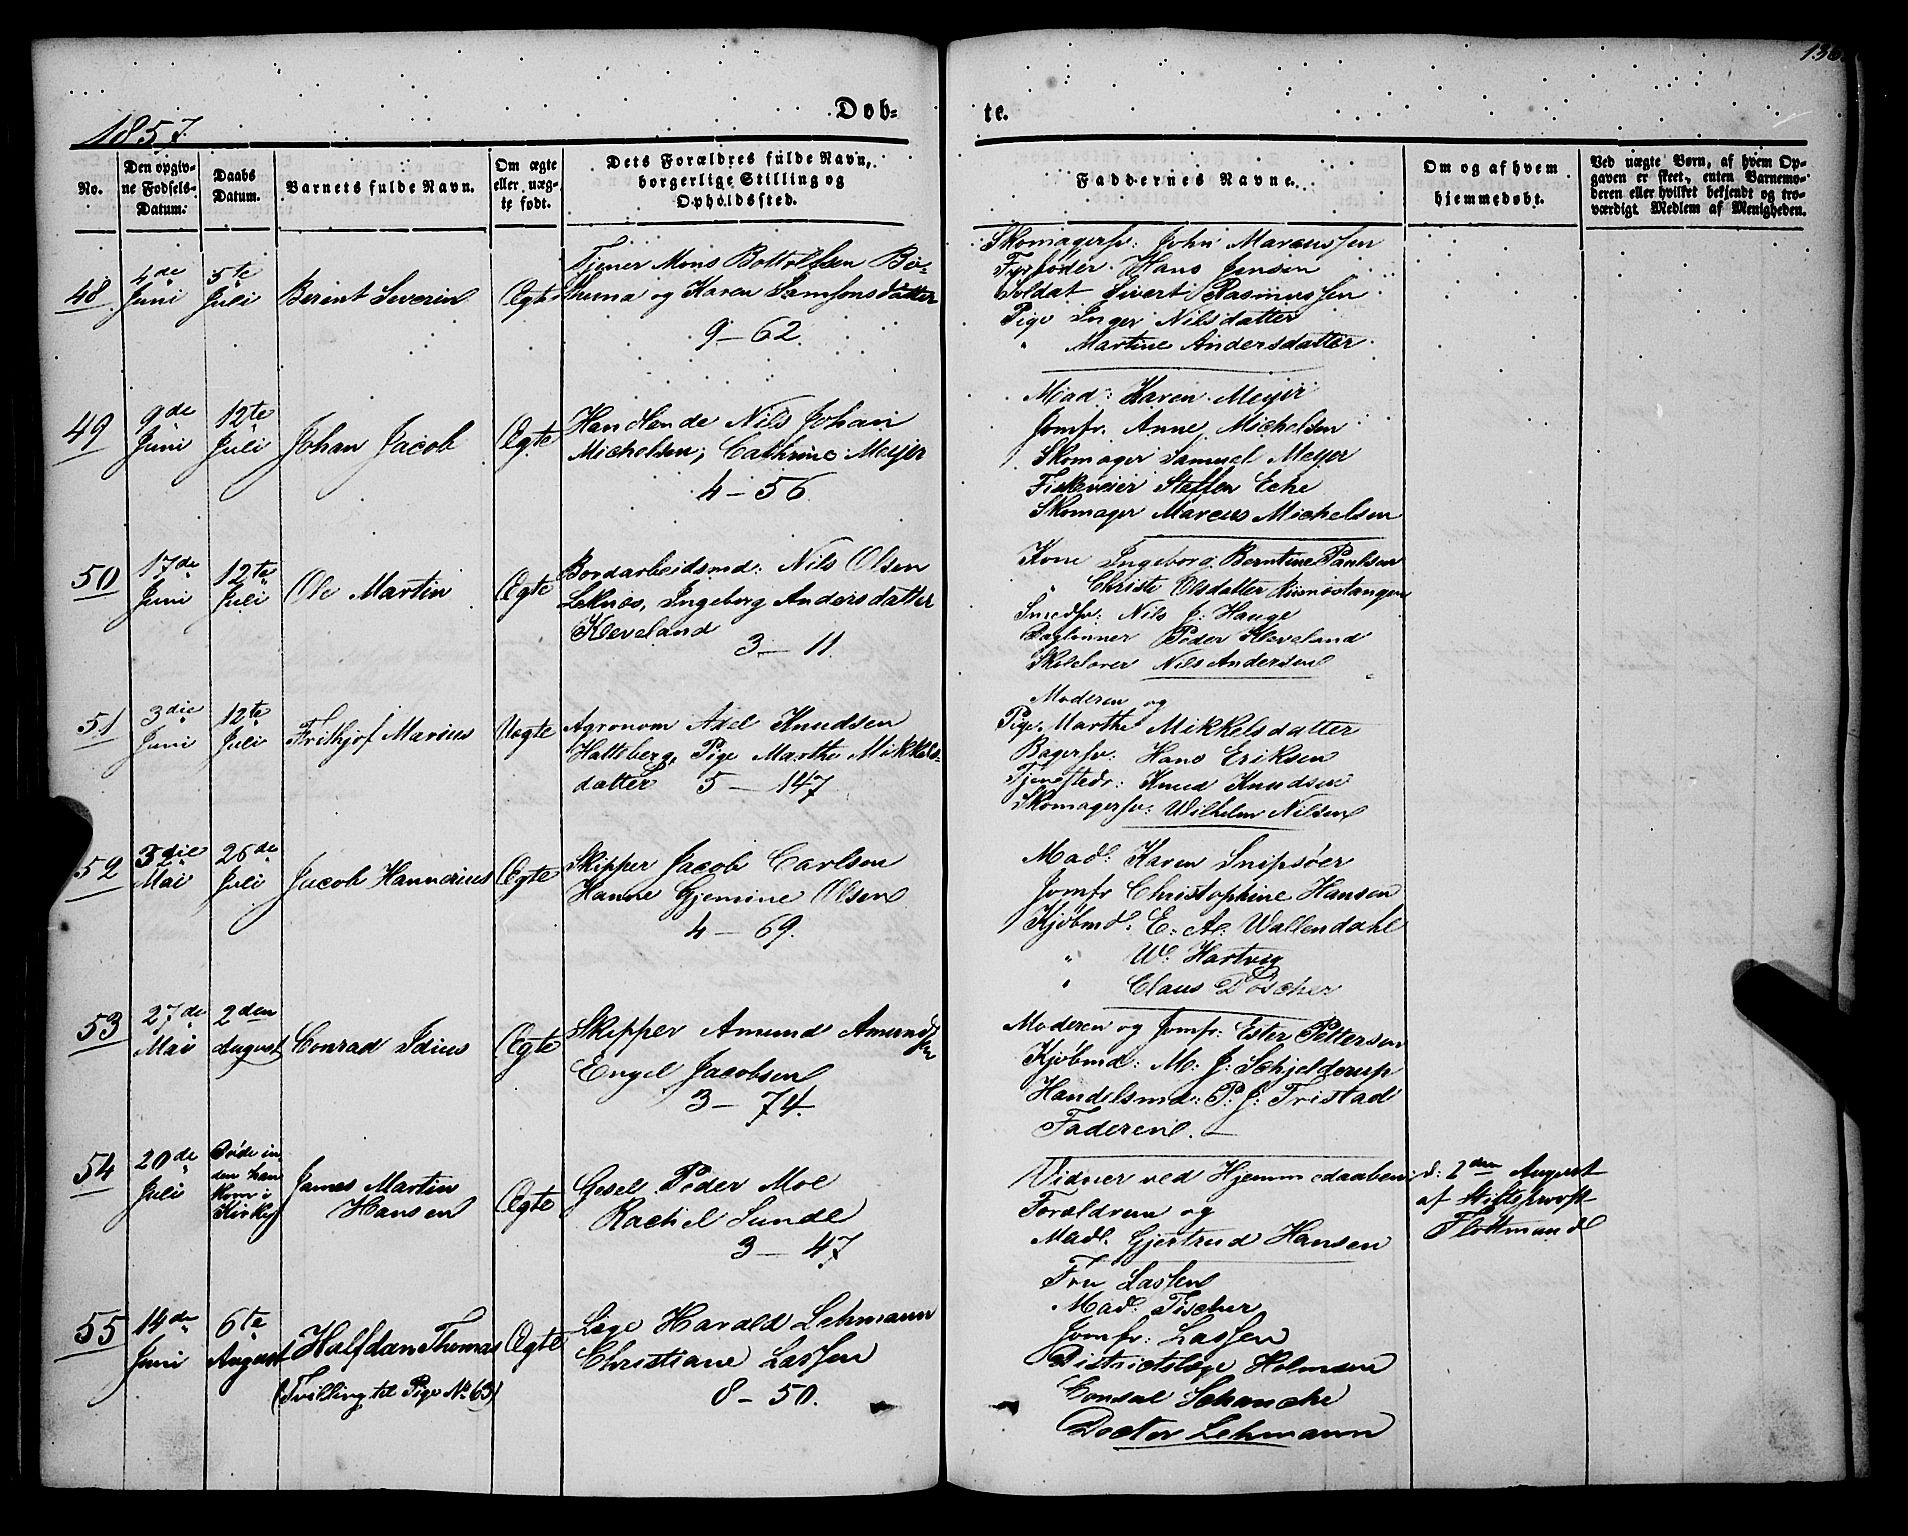 136
1857.
Döb-
te.
No.
Den opgiv-
ne Födsels-
Datum.
Daabs
Datum.
Barnets fulde Navn.
Om ægte
eller uæg-
te födt.
Dets Forældres fulde Navn,
borgerlige Stilling og
Opholdssted.
Faddernes Navne.
Om og af hvem
hjemmedöbt.
Ved uægte Börn, af hvem Op-
gaven er skeet, enten Barnemo-
deren eller hvilket bekjendt og tro-
værdigt Medlem af Menigheden.
48
4de
Juni
5te
Juli
Berent Severin
Ægte
Tjener Mons Bottolfsen
og Karen Samsonsdatter
9 – 62.
Skomagersv: John Marcussen
Fyrböder Hans Jensen
Soldat Sivert Rasmussen
Pige Inger Nilsdatter
" Martine Andersdatter
49
9de
Juni
12te
Juli
Johan Jacob
Ægte
Handlende Nils Johan
Michelsen, Cathrine Meyer
4 – 56.
Mad: Karen Meyer
Jomfr. Anne Michelsen
Skomager Samuel Meyer
Steffen Eche
Skomager Marcus Michelsen
50
17de
Juni
12te
Juli
Ole Martin
Ægte
Bordarbeidsmd: Nils Olsen
Leknes, Ingeborg Andersdatter
Kleveland
3 – 11.
Kone Ingeborg Berntine Paulsen
" Christi Olsdatter
Smedsv: Nils J: Hauge
Daglönner Peder Kleveland
Nils Andersen
51
3die
Juni
12te
Juli
Frithjof Marius
Uegte
Agronom Axel Knudsen
Haltsberg, Pige Marthe Mikkels-
datter 5 – 147
Moderen og
Pige Marthe Mikkelsdatter
Bagersv: Hans Eriksen
Knud Knudsen
Skomagersv: Wilhelm Nilsen
52
3die
Mai
26de
Juli
Jacob Hannerius
Ægte
Skipper Jacob Carlsen
Hanne Gjemine Olsen
4 – 69.
Madl: Karen Snipsöer
Jomfr Christophine Hansen
Kjöbmd: E. A. Wallendahl
" W. Hartvig
" Claus Döscher
53
27de
Mai
2den
August
Conrad Idius
Ægte
Skipper Amund Amund-
sen
Engel Jacobsen
3 – 74
Moderen og Jomfr: Ester Pettersen
Kjöbmd: M: J: Schjelderup
Handelsmd: P: J: Tristad
Faderen. –
54
20de
Juli
Döde in
den han
kom i
Kirke
James Martin
Hansen
Ægte
Gesel Peder Moe
Rachel Sunde
3 – 47
Vidner ved Hjemmedaaben:
Forældrene og
Madl. Gjertrud Hansen
d: 2den August
af Stiftsprovst
Flottmand
55
14de
Juni
6te
August
Halfdan Thomas
(Tvilling til Pige No 63)
Ægte
Læge Harald Lehmann
Christiane Lassen
8 – 50.
Fru Lassen
Mad: Fischer
Jomfr: Lassen
Districtslæge Holmsen
Consul Schancke
Doctor Lehmann